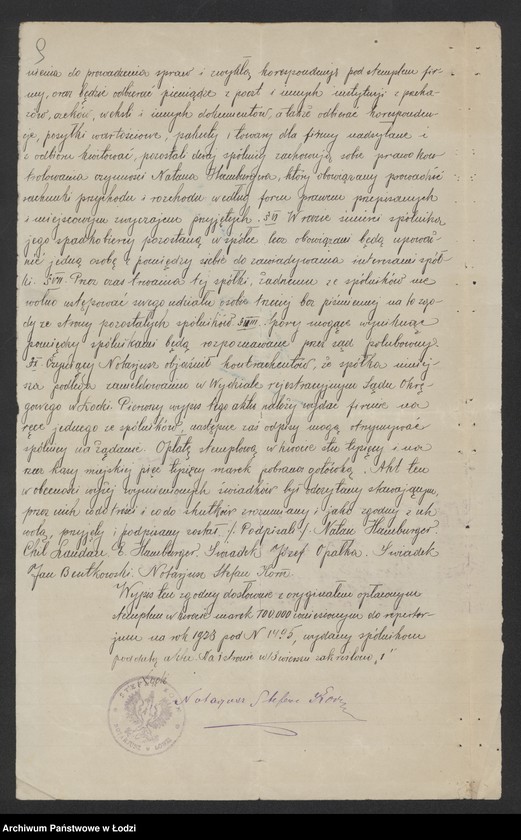 nienia do prowadzenia spraw i zwykłą korespondencję pod stemplem fir-
my, oraz będzie odbierać pieniądze z poczt i innych instytucji z przeka-
zów, czeków, weksli i innych dokumentów, a także odbierać koresponden-
cje, posyłki wartościowe, pakiety i towary dla firmy nadsyłane i
z odbioru kwitować, pozostali dwaj spólnicy zachowują sobie prawo kon-
trolowania czynności Natana Hamburgera, który obowiązany prowadzić
rachunki przychodu i rozchodu według form prawem przepisanych
i miejscowym zwyczajem przyjętych. § VI W razie śmierci spólnika,
jego spadkobiercy pozostaną w spółce lecz obowiązani będą upoważ-
nić jedną osobę z pomiędzy siebie do zawiadywania interesami spół-
ki. § VII. Przez czas trwania tej spółki, żadnemu ze spólników nie
wolno ustępować swego udziału osobie trzeciej bez piśmiennej na to zgo-
dy ze strony pozostałych spólników § VIII. Spory mogące wyniknąć
pomiędzy spólnikami będą rozpoznawane przez sąd polubowny.
Czyniący Notarjusz objaśnił kontrahentów, że spółka niniej-
sza podlega zameldowaniu w Wydziale rejestracyjnym Sądu Okrę-
gowego w Łodzi. Pierwszy wypis tego aktu należy wydać firmie na
ręce jednego ze spólników, następne zaś odpisy mogą otrzymywać
spólnicy na żądanie. Opłatę stemplową w kwocie stu tysięcy i na
rzecz kasy miejskiej pięć tysięcy marek pobrano gotówką. Akt ten
w obecności wyżej wymienionych świadków był odczytany stawającym,
przez nich co do treści i co do skutków zrozumiany i jako zgodny z ich
wolą, przyjęty i podpisany został. /. Podpisali /. Natan Hamburger.
Chil Landau. E. Hamburger. Świadek Józef Opałka. Świadek
Jan Bentkowski. Notarjusz Stefan Korn.
Wypis ten zgodny dosłownie z oryginałem opłaconym
stemplem w kwocie marek 100.000 wniesionym do reperto-
rjum na rok 1923 pod N 1495, wydany spólnikom
pod datą aktu. Na 1 stronie w wierszu zakreślono „i”
Notarjusz Stefan Korn
Archiwum Państwowe w Łodzi